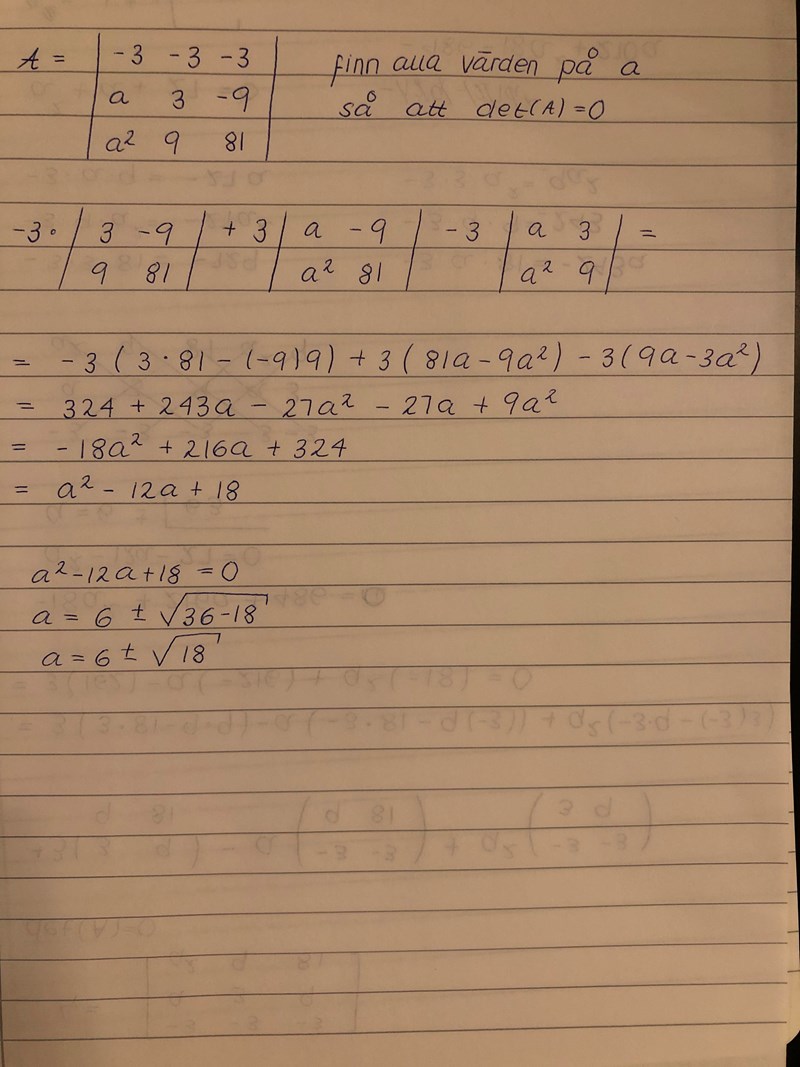 A = | -3 -3 -3 | finn alla värden på a
| a 3 -9 | så att det(A)=0
| a² 9 81 |
-3 · | 3 -9 | + 3 | a -9 | - 3 | a 3 | =
| 9 81 | | a² 81 | | a² 9 |
= -3 ( 3 · 81 - (-9)9) + 3 ( 81a - 9a²) - 3(9a-3a²)
= 324 + 243a - 27a² - 27a + 9a²
= -18a² + 216a + 324
= a² - 12a + 18
a²-12a+18 = 0
a = 6 ± √36-18
a = 6 ± √18